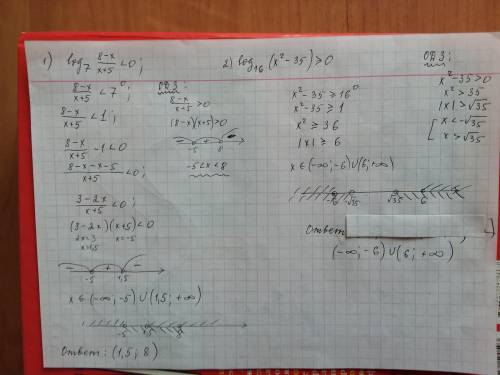 1) log₇ (8-x)/(x+5) < 0;
(8-x)/(x+5) < 7⁰;
(8-x)/(x+5) < 1;
(8-x)/(x+5) - 1 < 0
(8-x-x-5)/(x+5) < 0;
(3-2x)/(x+5) < 0;
(3-2x)(x+5) < 0
2x=3 x=-5
x=1,5
- + -
-5 1,5
x ∈ (-∞; -5) ∪ (1,5; +∞)
-5 1,5 8
Ответ: (1,5; 8)
ОДЗ:
(8-x)/(x+5) > 0
(8-x)(x+5) > 0
- + -
-5 8
-5 < x < 8
2) log₁₆ (x²-35) ≥ 0
x²-35 ≥ 16⁰
x²-35 ≥ 1
x² ≥ 36
|x| ≥ 6
x ∈ (-∞; -6) ∪ (6; +∞)
-6 -√35 √35 6
Ответ
(-∞; -6) ∪ (6; +∞)
ОДЗ:
x²-35 > 0
x² > 35
|x| > √35
[ x < -√35
x > √35